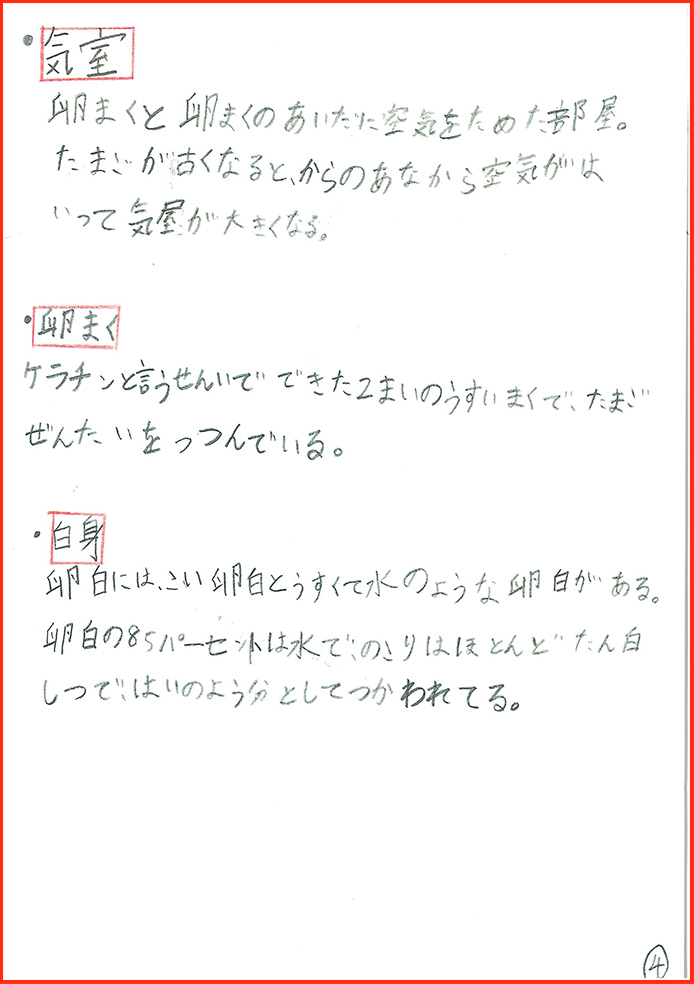 ・気室
卵まくと卵まくのあいだに空気をためた部屋。
たまごが古くなると、からのあなから空気がは
いって気屋が大きくなる。
・卵まく
ケラチンと言うせんいでできた2まいのうすいまくで、たまご
ぜんたいをつつんでいる。
・白身
卵白には、こい卵白とうすくて水のような卵白がある。
卵白の85パーセントは水で、のこりはほとんどたん白
しつで、はいのよう分としてつかわれてる。
④